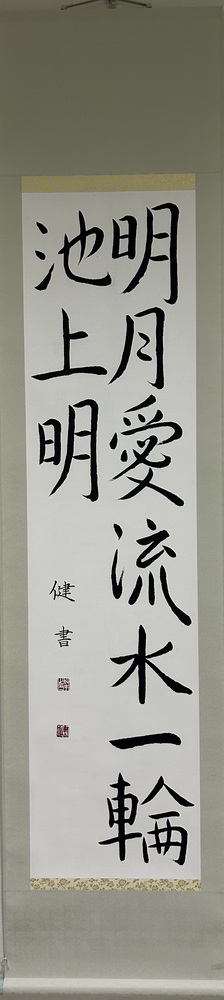 明月愛流水一輪
池上明
健書